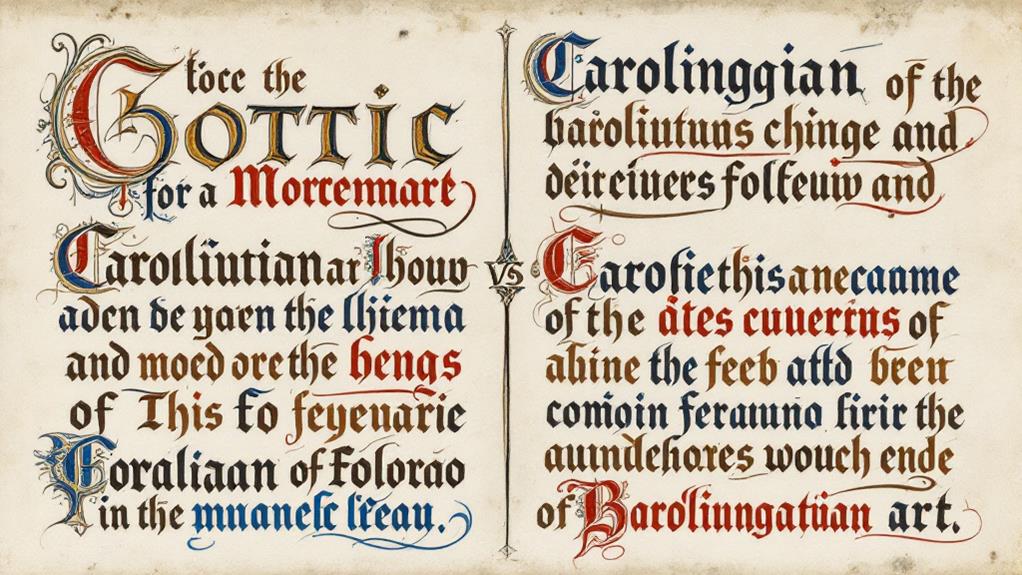 focc the
Gottic
for a Morremmare
Caroliutian ar Jhouv
aden de yarn the lhiema
and moed ore the hengs
of This fo feyenarie
Foraliaan of Foloráo
in the mnanelc lfeau.
vs
Carolinggian of the
baroliutuns chinge and
deitciuers folfeuiv and
Carofiethis anecaume
of the ates cuuertns of
ahine the feeb attd breu
comoin feraumno firir the
aumdehares wouch ende
of Baroliungatuian art.